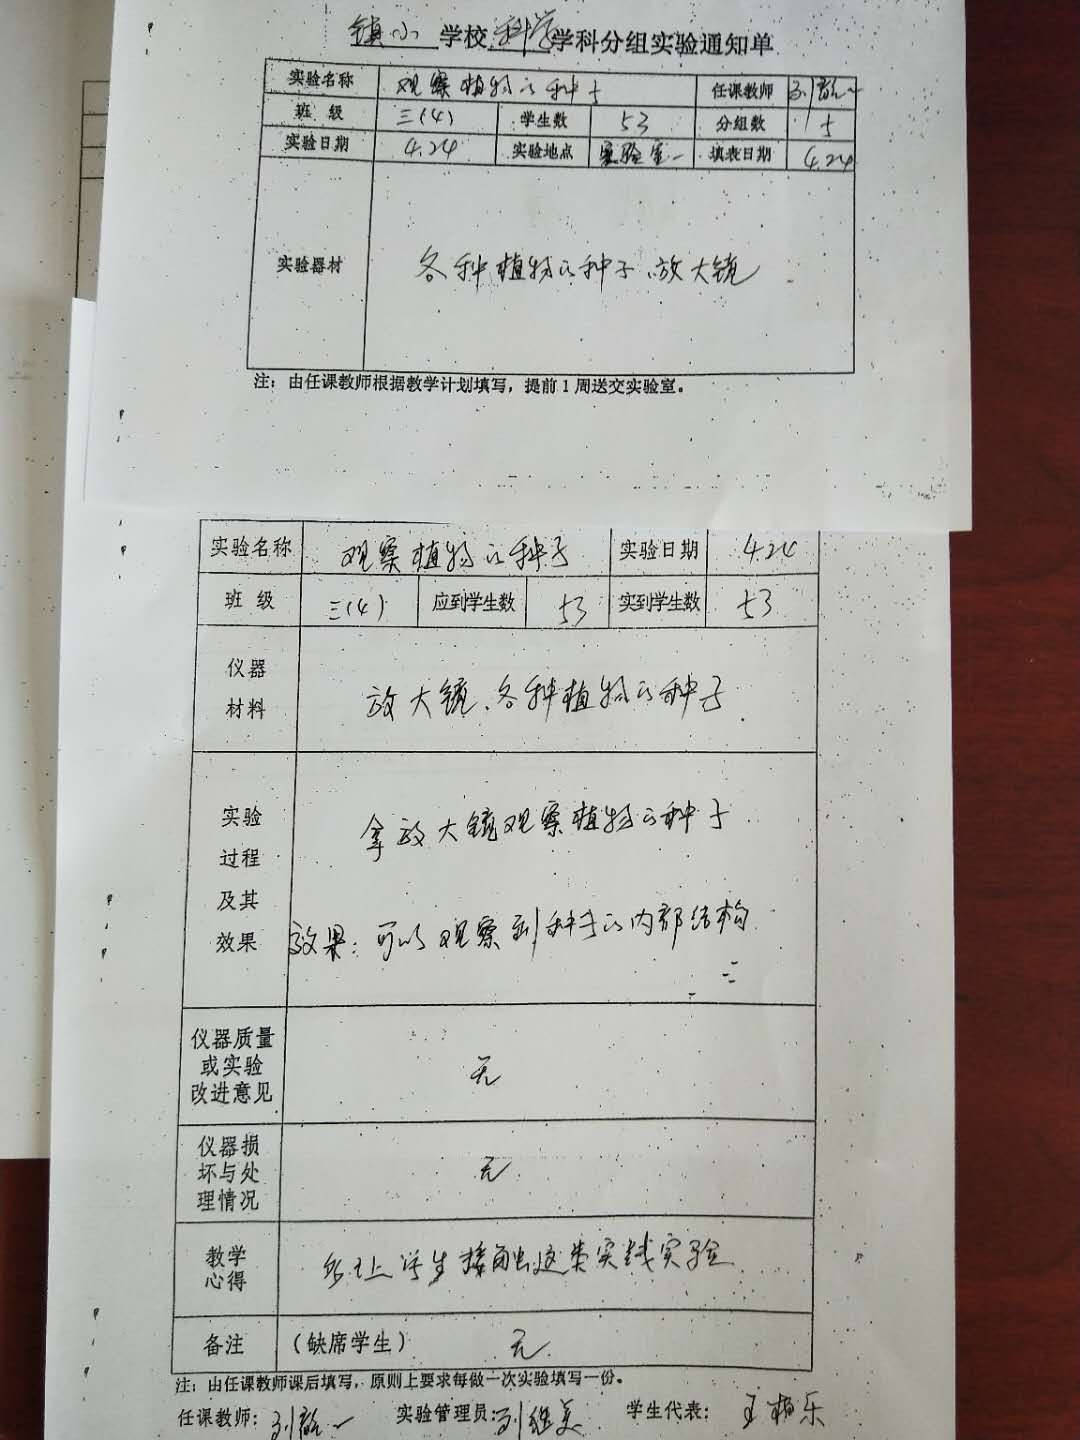 镇小 学校 科学 学科分组实验通知单
实验名称 观察植物的种子 任课教师 刘
班 级 三(4) 学生数 53 分组数 5
实验日期 4.24 实验地点 实验室一 填表日期 4.24
实验器材 各种植物的种子、放大镜
注：由任课教师根据教学计划填写，提前1周送交实验室。
实验名称 观察植物的种子 实验日期 4.24
班 级 三(4) 应到学生数 53 实到学生数 53
仪器
材料
放大镜、各种植物的种子
实验
过程
及其
效果
拿放大镜观察植物的种子
效果：可以观察到种子的内部结构
仪器质量
或实验
改进意见
无
仪器损
坏与处
理情况
无
教学
心得
多让学生接触这类实践实验
备注 (缺席学生) 无
注：由任课教师课后填写，原则上要求每做一次实验填写一份。
任课教师：刘 一 实验管理员：刘继美 学生代表：王 乐